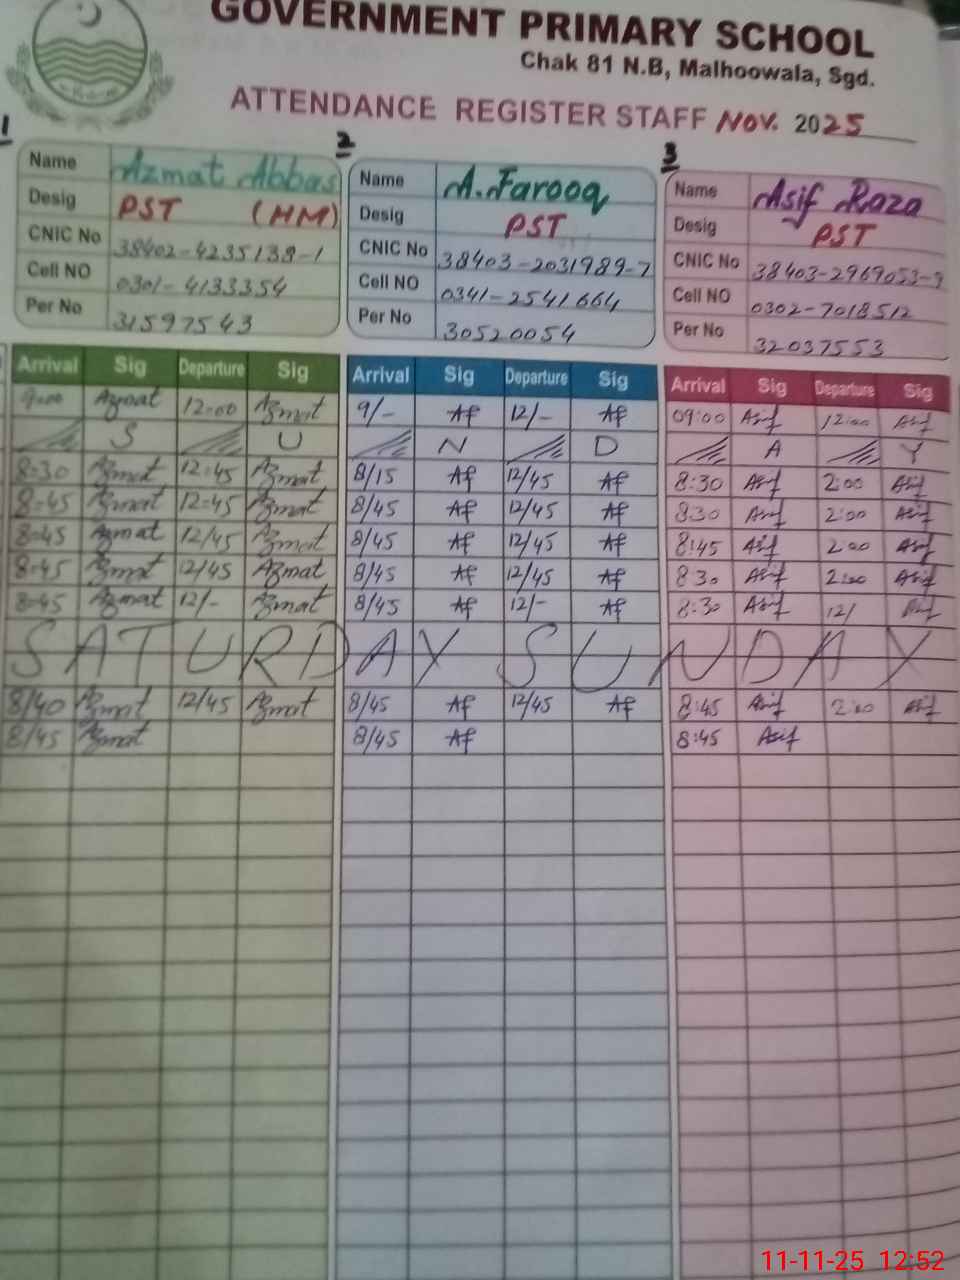 GOVERNMENT PRIMARY SCHOOL
Chak 81 N.B, Malhoowala, Sgd.
ATTENDANCE REGISTER STAFF NOV. 2025
1
Name Azmat Abbas
Desig PST (HM)
CNIC No 38402-4235139-1
Cell NO 0301-4133354
Per No 31597543
2
Name A.Farooq
Desig PST
CNIC No 38403-2031989-7
Cell NO 0341-2541664
Per No 30520054
3
Name Asif Raza
Desig PST
CNIC No 38403-2969053-9
Cell NO 0302-7018512
Per No 32037553
Arrival Sig Departure Sig Arrival Sig Departure Sig Arrival Sig Departure Sig
9:00 Azmat 12:00 Azmat 9/- Af 12/- Af 09:00 Asif 12:00 Asif
S U N D A Y
8:30 Azmat 12:45 Azmat 8/15 Af 12/45 Af 8:30 Asif 2:00 Asif
8:45 Azmat 12:45 Azmat 8/45 Af 12/45 Af 8:30 Asif 2:00 Asif
8:45 Azmat 12/45 Azmat 8/45 Af 12/45 Af 8:45 Asif 2:00 Asif
8:45 Azmat 12/45 Azmat 8/45 Af 12/45 Af 8:30 Asif 2:00 Asif
8:45 Azmat 12/- Azmat 8/45 Af 12/- Af 8:30 Asif 12/ Asif
SATURDAY SUNDAY
8/40 Azmat 12/45 Azmat 8/45 Af 12/45 Af 8:45 Asif 2:00 Asif
8/45 Azmat 8/45 Af 8:45 Asif
11-11-25 12:52